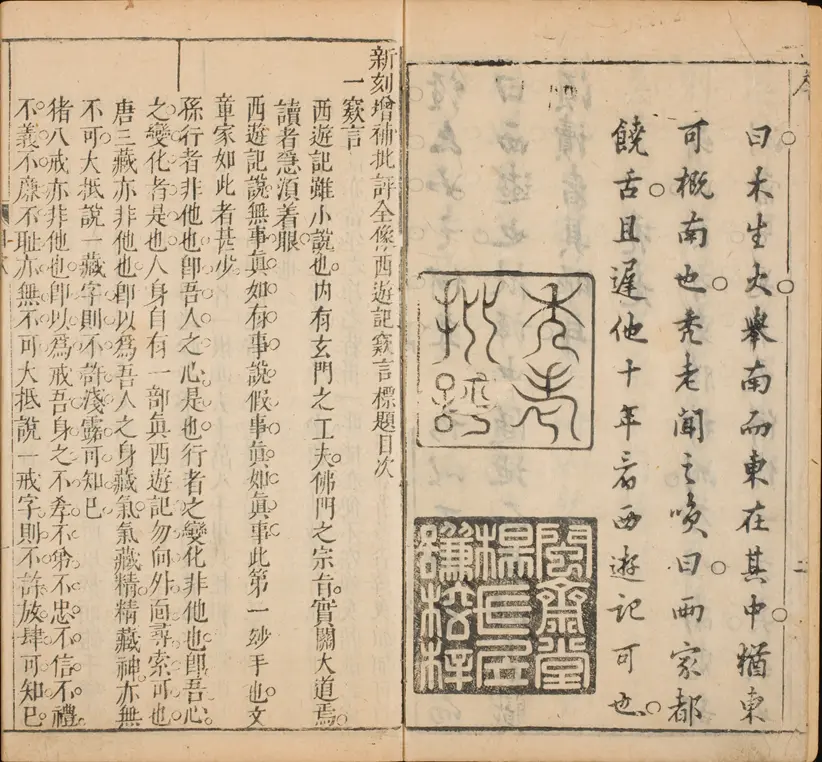 曰木生火舉南而東在其中猶東
可概南也禿老聞之嘆曰兩家都
饒舌且遲他十年看西遊記可也
禿老
批評
閩齋堂
楊氏居
謙校梓
二
新刻增補批評全像西遊記竅言標題目次
一竅言
西遊記雖小說也內有玄門之工夫佛門之宗旨實關大道焉
讀者急須着眼
西遊記說無事眞如有事說假事眞如眞事此第一妙手也文
章家如此者甚少
孫行者非他也卽吾人之心是也行者之變化非他也卽吾心
之變化者是也人身自有一部眞西遊記勿向外面尋索可也
唐三藏亦非他也卽以爲吾人之身藏氣氣藏精精藏神亦無
不可大抵說一藏字則不許淺露可知已
猪八戒亦非他也卽以爲戒吾身之不孝不弟不忠不信不禮
不義不廉不耻亦無不可大抵說一戒字則不許放肆可知已